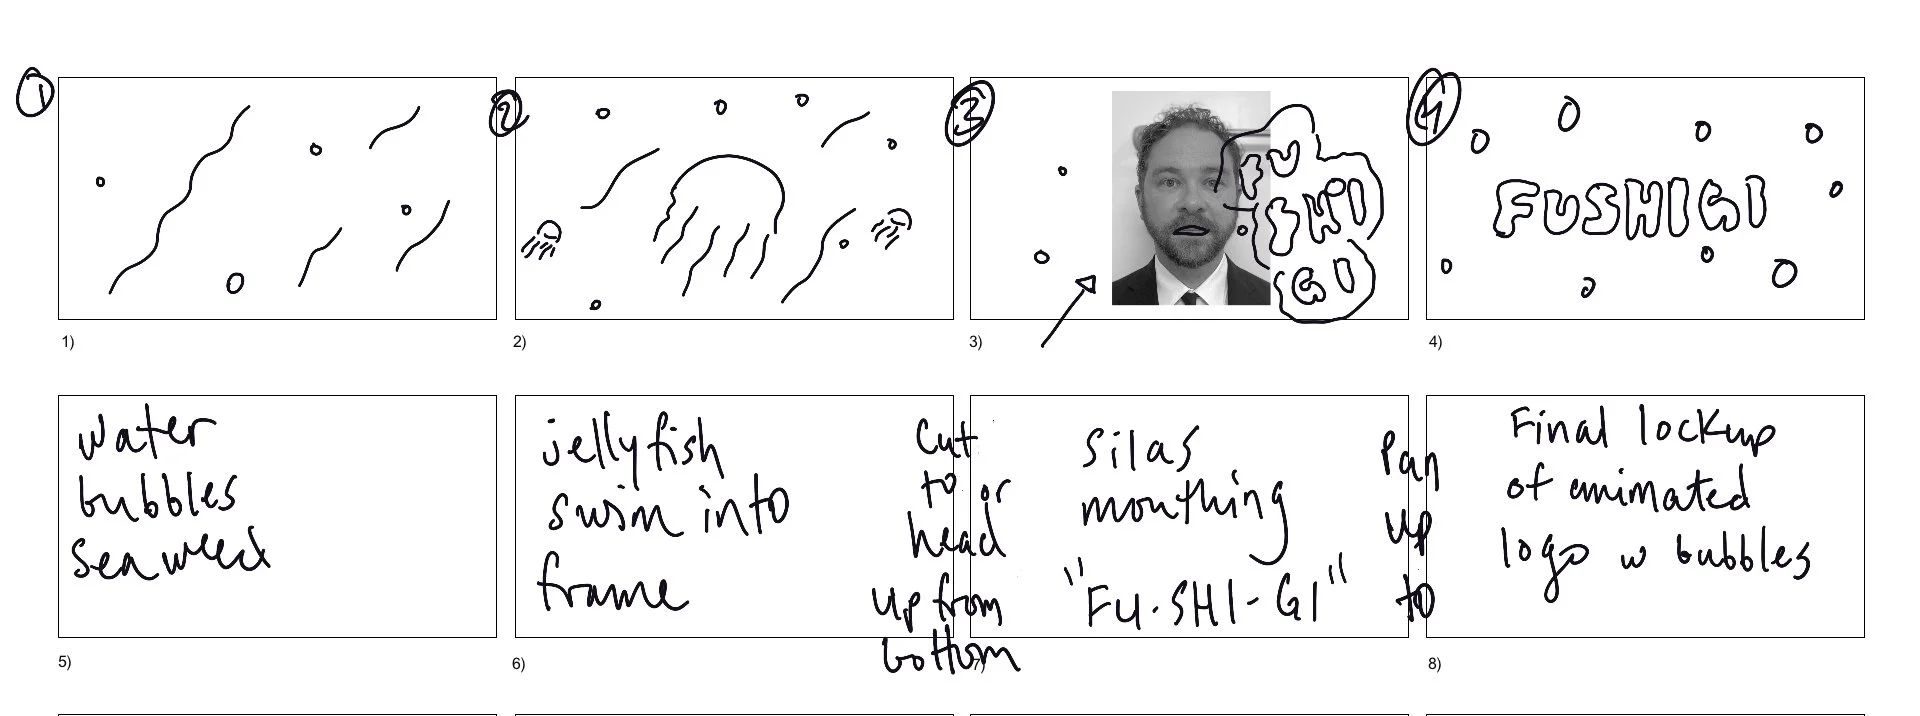 1
2
3
4
FU
SHI
GI
FUSHIGI
1)
2)
3)
4)
water
bubbles
seaweed
jellyfish
swim into
frame
Cut
to or
head
up from
bottom
Silas
mouthing
"FU-SHI-GI"
Pan
up
to
Final lockup
of animated
logo w bubbles
5)
6)
7)
8)